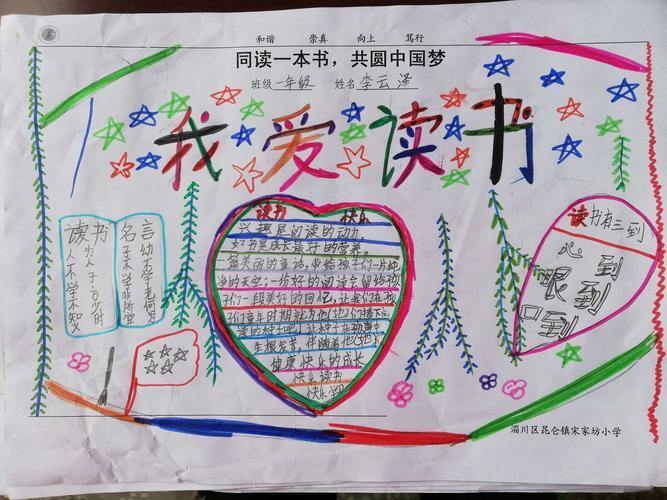 和谐 崇真 向上 笃行
同读一本书，共圆中国梦
班级 一年级 姓名 李云泽
我爱读书
读书名言
人不学不知义
为人子方少时
子不学非所宜
幼不学老何为
读书 快乐
兴趣是阅读的动力,
好书是成长最好的营养。
篇美丽的童话,带给孩子们一片纯
净的天空;一份好的阅读会留给孩
子们一段美好的回忆,让我们在孩
子们童年时期就为他(她)们播下阅
读的种子吧!让种子在
生根发芽,伴随着他(她)们
健康快乐的成长
快乐读书
快乐
读书有三到
心到
眼到
口到
淄川区昆仑镇宋家坊小学